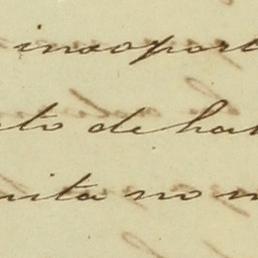 insoport
to de ha
ita no